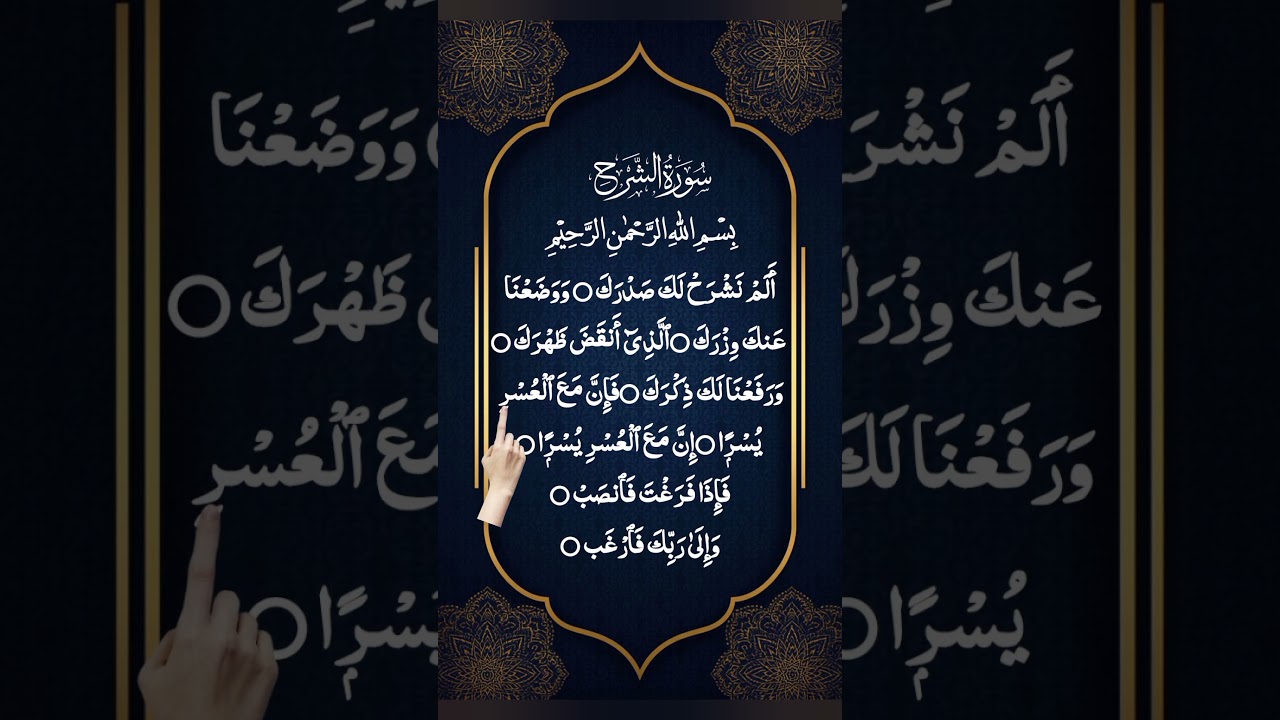 سُورَةُ الشَّرْحِ
بِسْمِ اللهِ الرَّحْمٰنِ الرَّحِيْمِ
أَلَمْ نَشْرَحْ لَكَ صَدْرَكَ ○ وَوَضَعْنَا
عَنكَ وِزْرَكَ ○ ٱلَّذِىٓ أَنقَضَ ظَهْرَكَ ○
وَرَفَعْنَا لَكَ ذِكْرَكَ ○ فَإِنَّ مَعَ ٱلْعُسْرِ
يُسْرًا ○ إِنَّ مَعَ ٱلْعُسْرِ يُسْرًا ○
فَإِذَا فَرَغْتَ فَٱنصَبْ ○
وَإِلَىٰ رَبِّكَ فَٱرْغَب ○